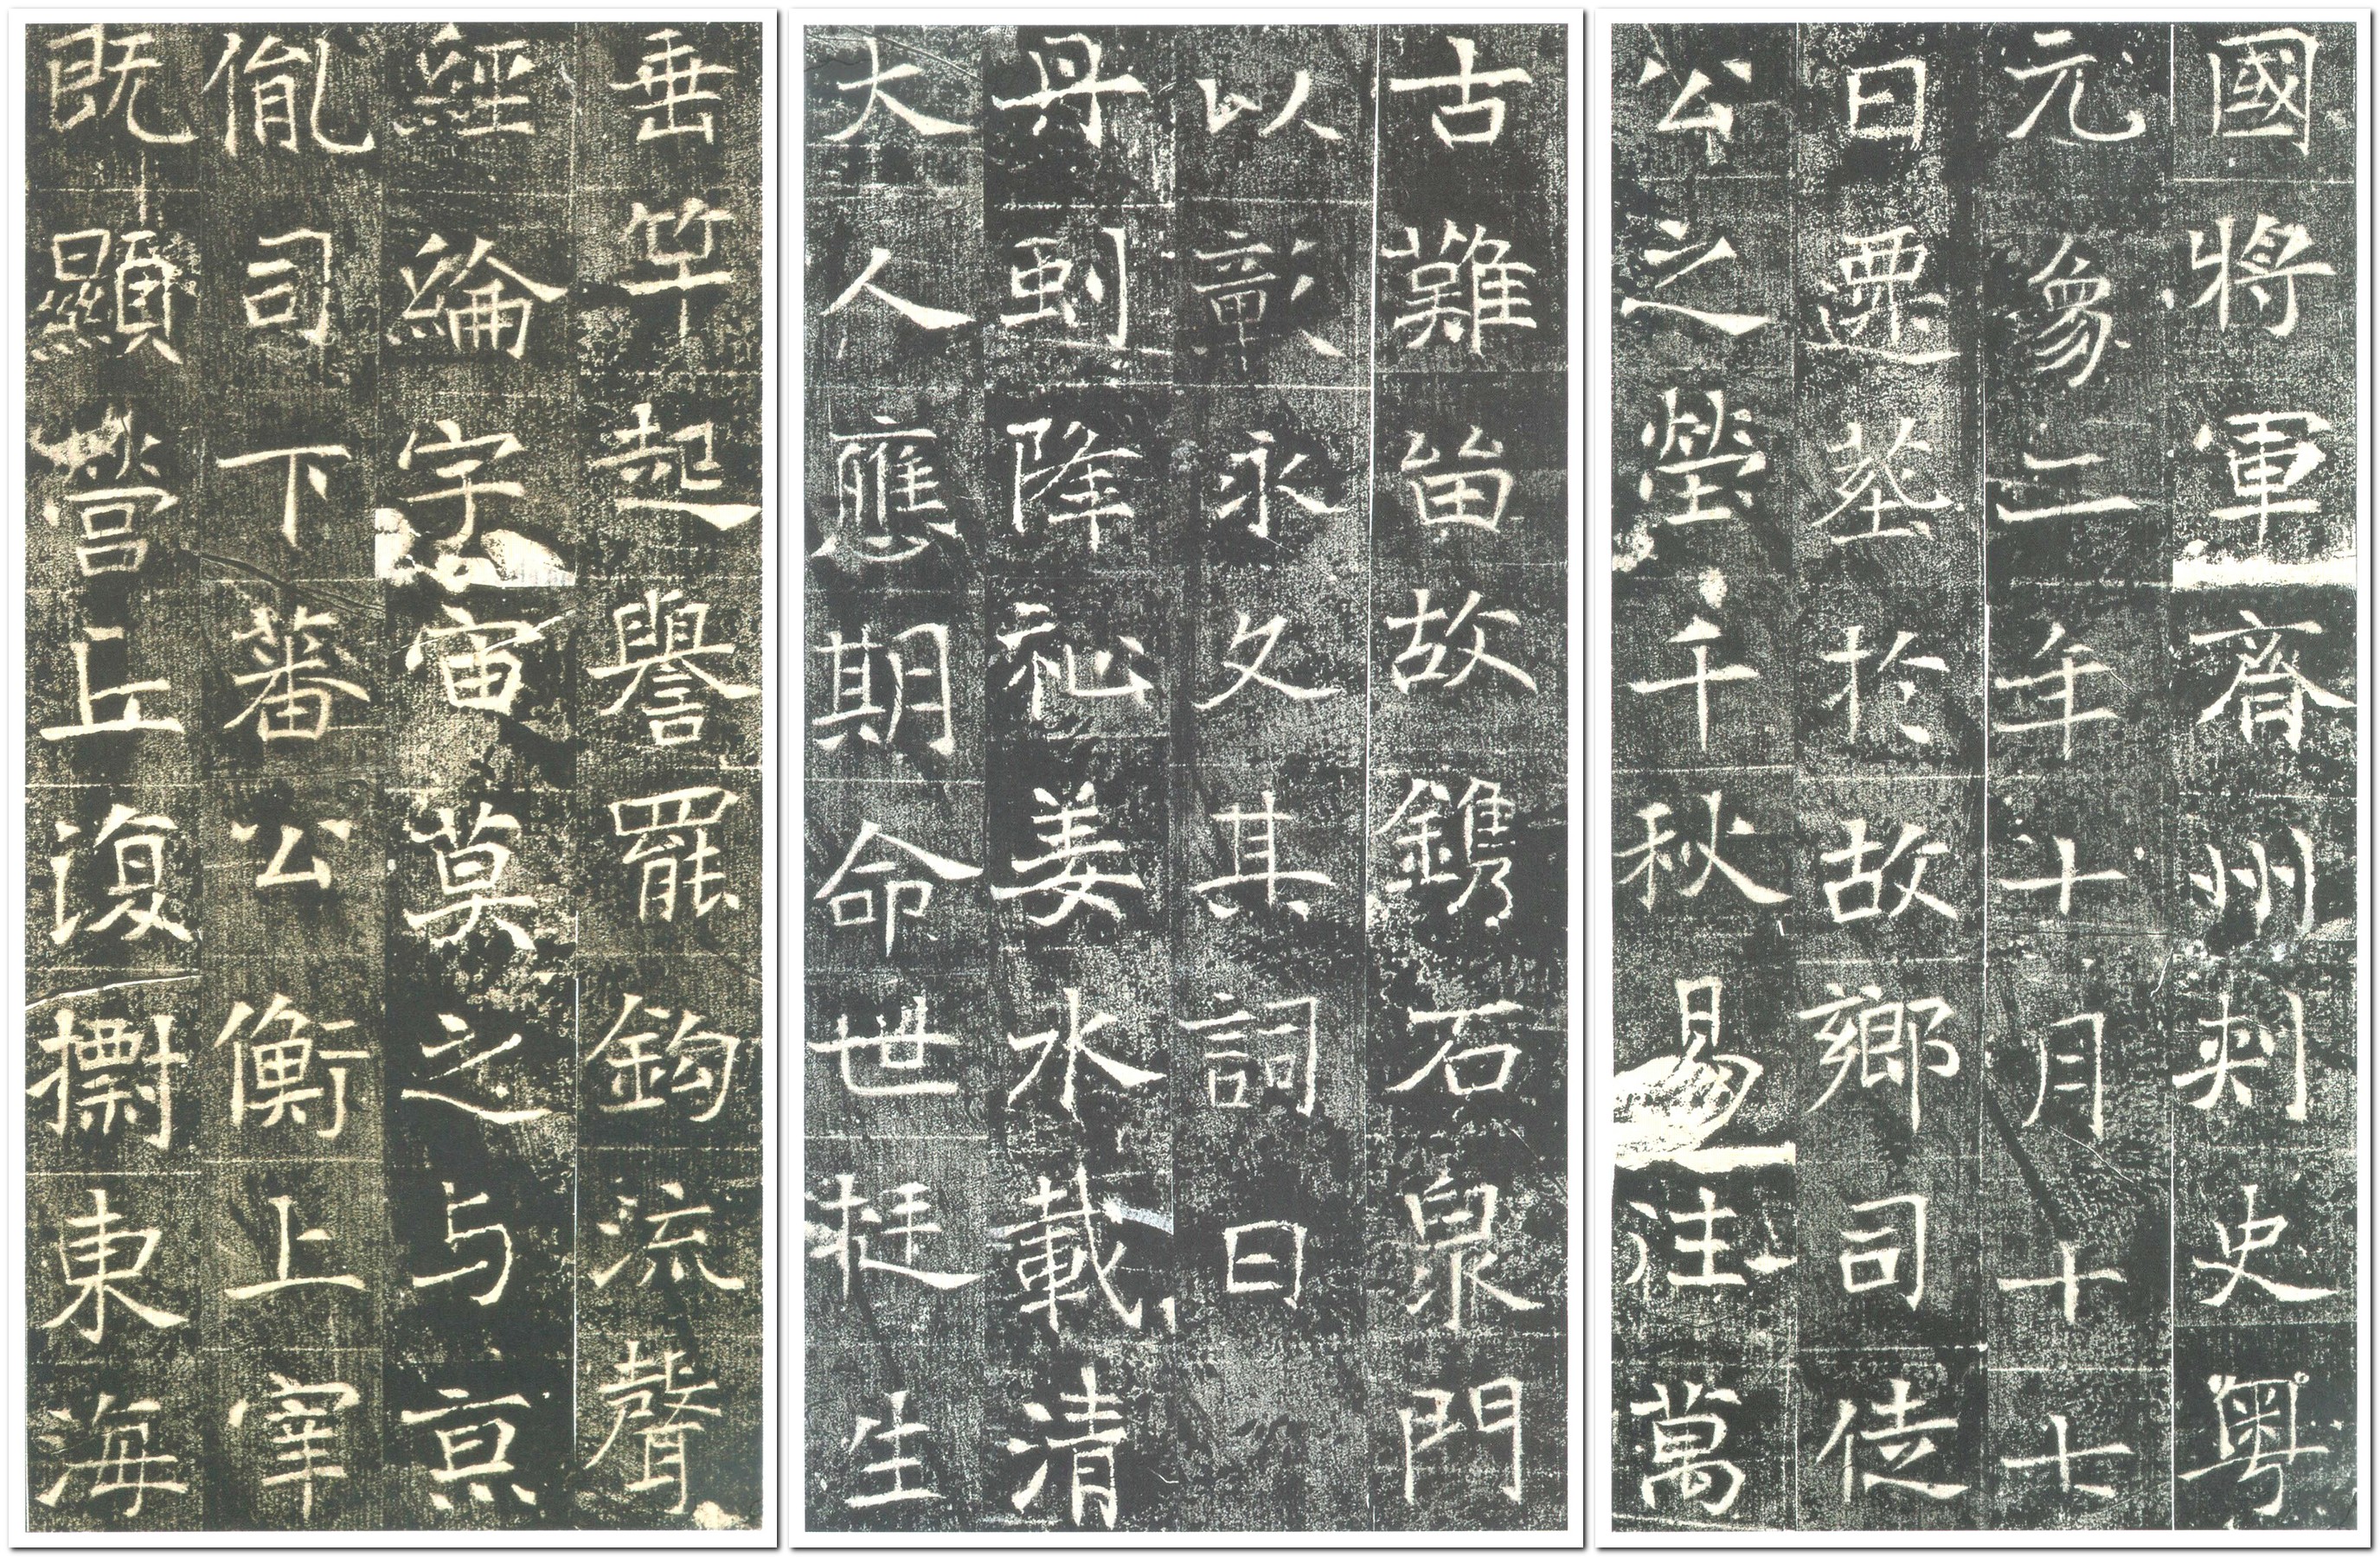 國將軍齊州刺史粵
元象二年十月十七
日遷葬於故鄉司徒
公之塋千秋易注萬
古難留故鐫石泉門
以彰永久其詞曰
丹降祉姜水載清
大人應期命世挺生
垂竿起譽罷鈎流聲
經綸宇宙莫之与京
胤司下蕃公衡上宰
既顯營丘復摽東海